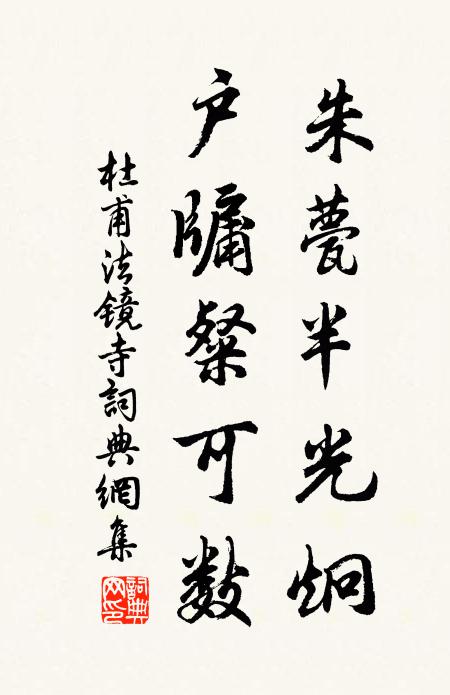 朱甍半光炯
户牖粲可数
杜甫法鏡寺詞典網集
詞典網印